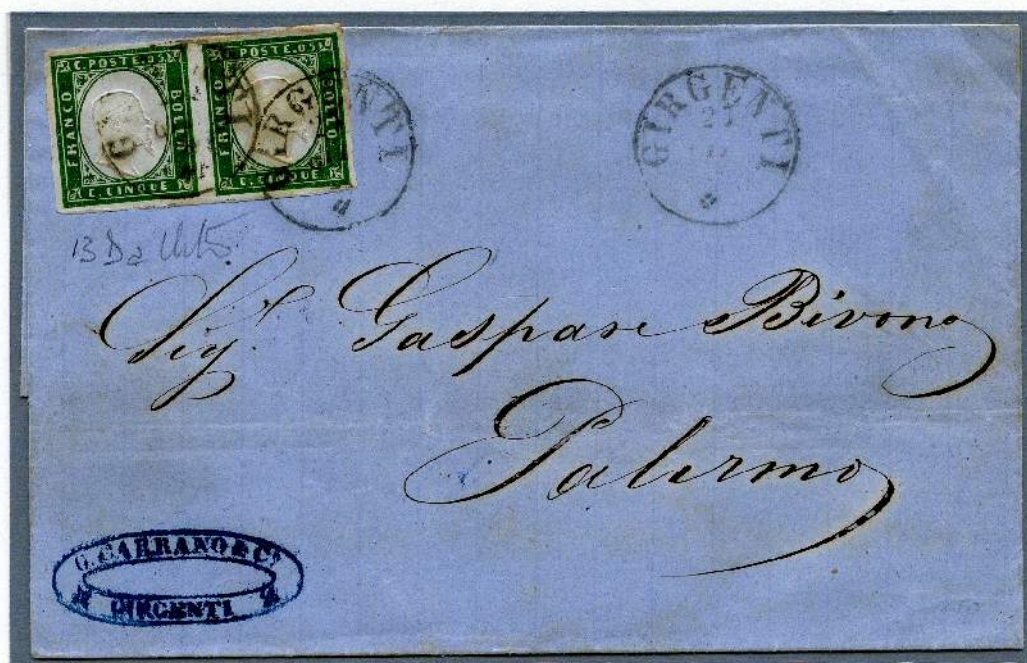 C. POSTE. 05
FRANCO
BOLLO
C. CINQUE
C. POSTE. 05
FRANCO
BOLLO
C. CINQUE
GIRGENTI
GIRGENTI
13 Da
Sig.r Gaspare Bivona
Palermo
G. CARRANO & C.
GIRGENTI